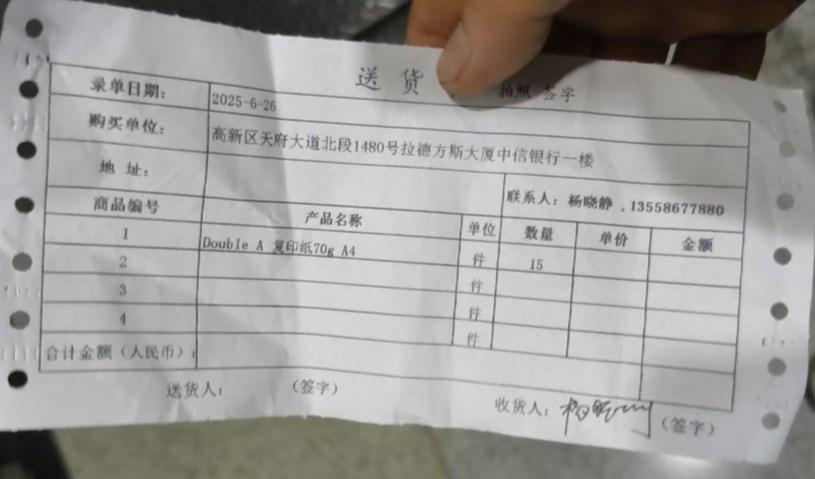 送 货
拍照 签字
录单日期： 2025-6-26
购买单位： 高新区天府大道北段1480号拉德方斯大厦中信银行一楼
地 址： 联系人：杨晓静 ,13558677880
商品编号 产品名称 单位 数量 单价 金额
1 Double A 复印纸70g A4 件 15
2 件
3 件
4 件
合计金额（人民币）：
送货人： （签字） 收货人： （签字）